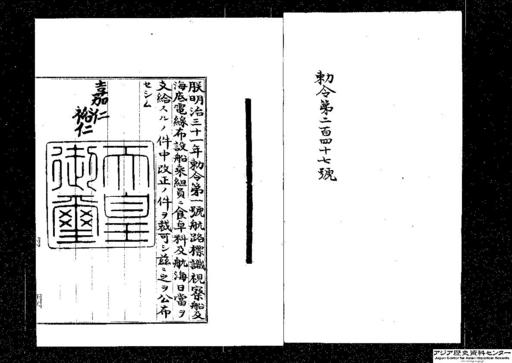 勅令第二百四十七號
朕明治三十一年勅令第一號航路標識視察船及
海底電線布設船乘組員ニ食卓料及航海日當ヲ
支給スルノ件中改正ノ件ヲ裁可シ茲ニ之ヲ公布
セシム
嘉仁
裕仁
天皇
御璽
アジア歴史資料センター
Japan Center for Asian Historical Records